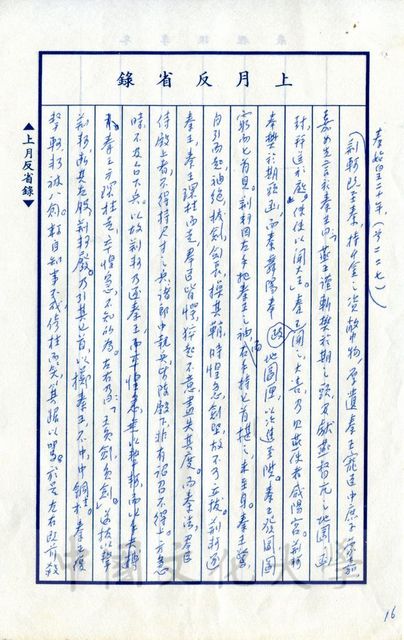 上月反省錄
秦始皇二十年（前二二七）
（荊軻既至秦，持千金之資幣物，厚遺秦王寵臣中庶子蒙嘉
嘉為先言於秦王曰，燕王謹斬樊於期之頭，及獻燕督亢之地圖，函
封，拜送於庭，使使以聞大王。」秦王聞之，大喜，乃見燕使者咸陽宮。荊軻
奉樊於期頭函，而秦舞陽奉地圖匣，以次進至陛。秦王發圖圖
窮而匕首見。荊軻因左手把秦王之袖，而右手持匕首揕之，未至身。秦王驚，
自引而起，袖絕，拔劍，劍長，操其鞘，時惶急，劍堅，故不可立拔。荊軻逐
秦王，秦王環柱而走。群臣皆愕，猝起不意，盡失其度。而秦法，群臣
侍殿上者，不得持尺寸之兵，諸郎中執兵，皆陳殿下，非有詔召不得上。方急
時，不及召下兵。以故荊軻乃逐秦王，而卒惶急，無以擊軻，而以手共搏
之。秦王方環柱走，卒惶急，不知所為，左右乃曰：「王負劍負劍。」遂拔以擊
荊軻，斷其左股，荊軻廢。乃引其匕首，以擿秦王，不中，中銅柱。秦王復
擊軻，軻被八創，軻自知事不就，倚柱而笑，箕踞以罵。於是左右既前殺
▲上月反省錄▼
中國文化大學
16